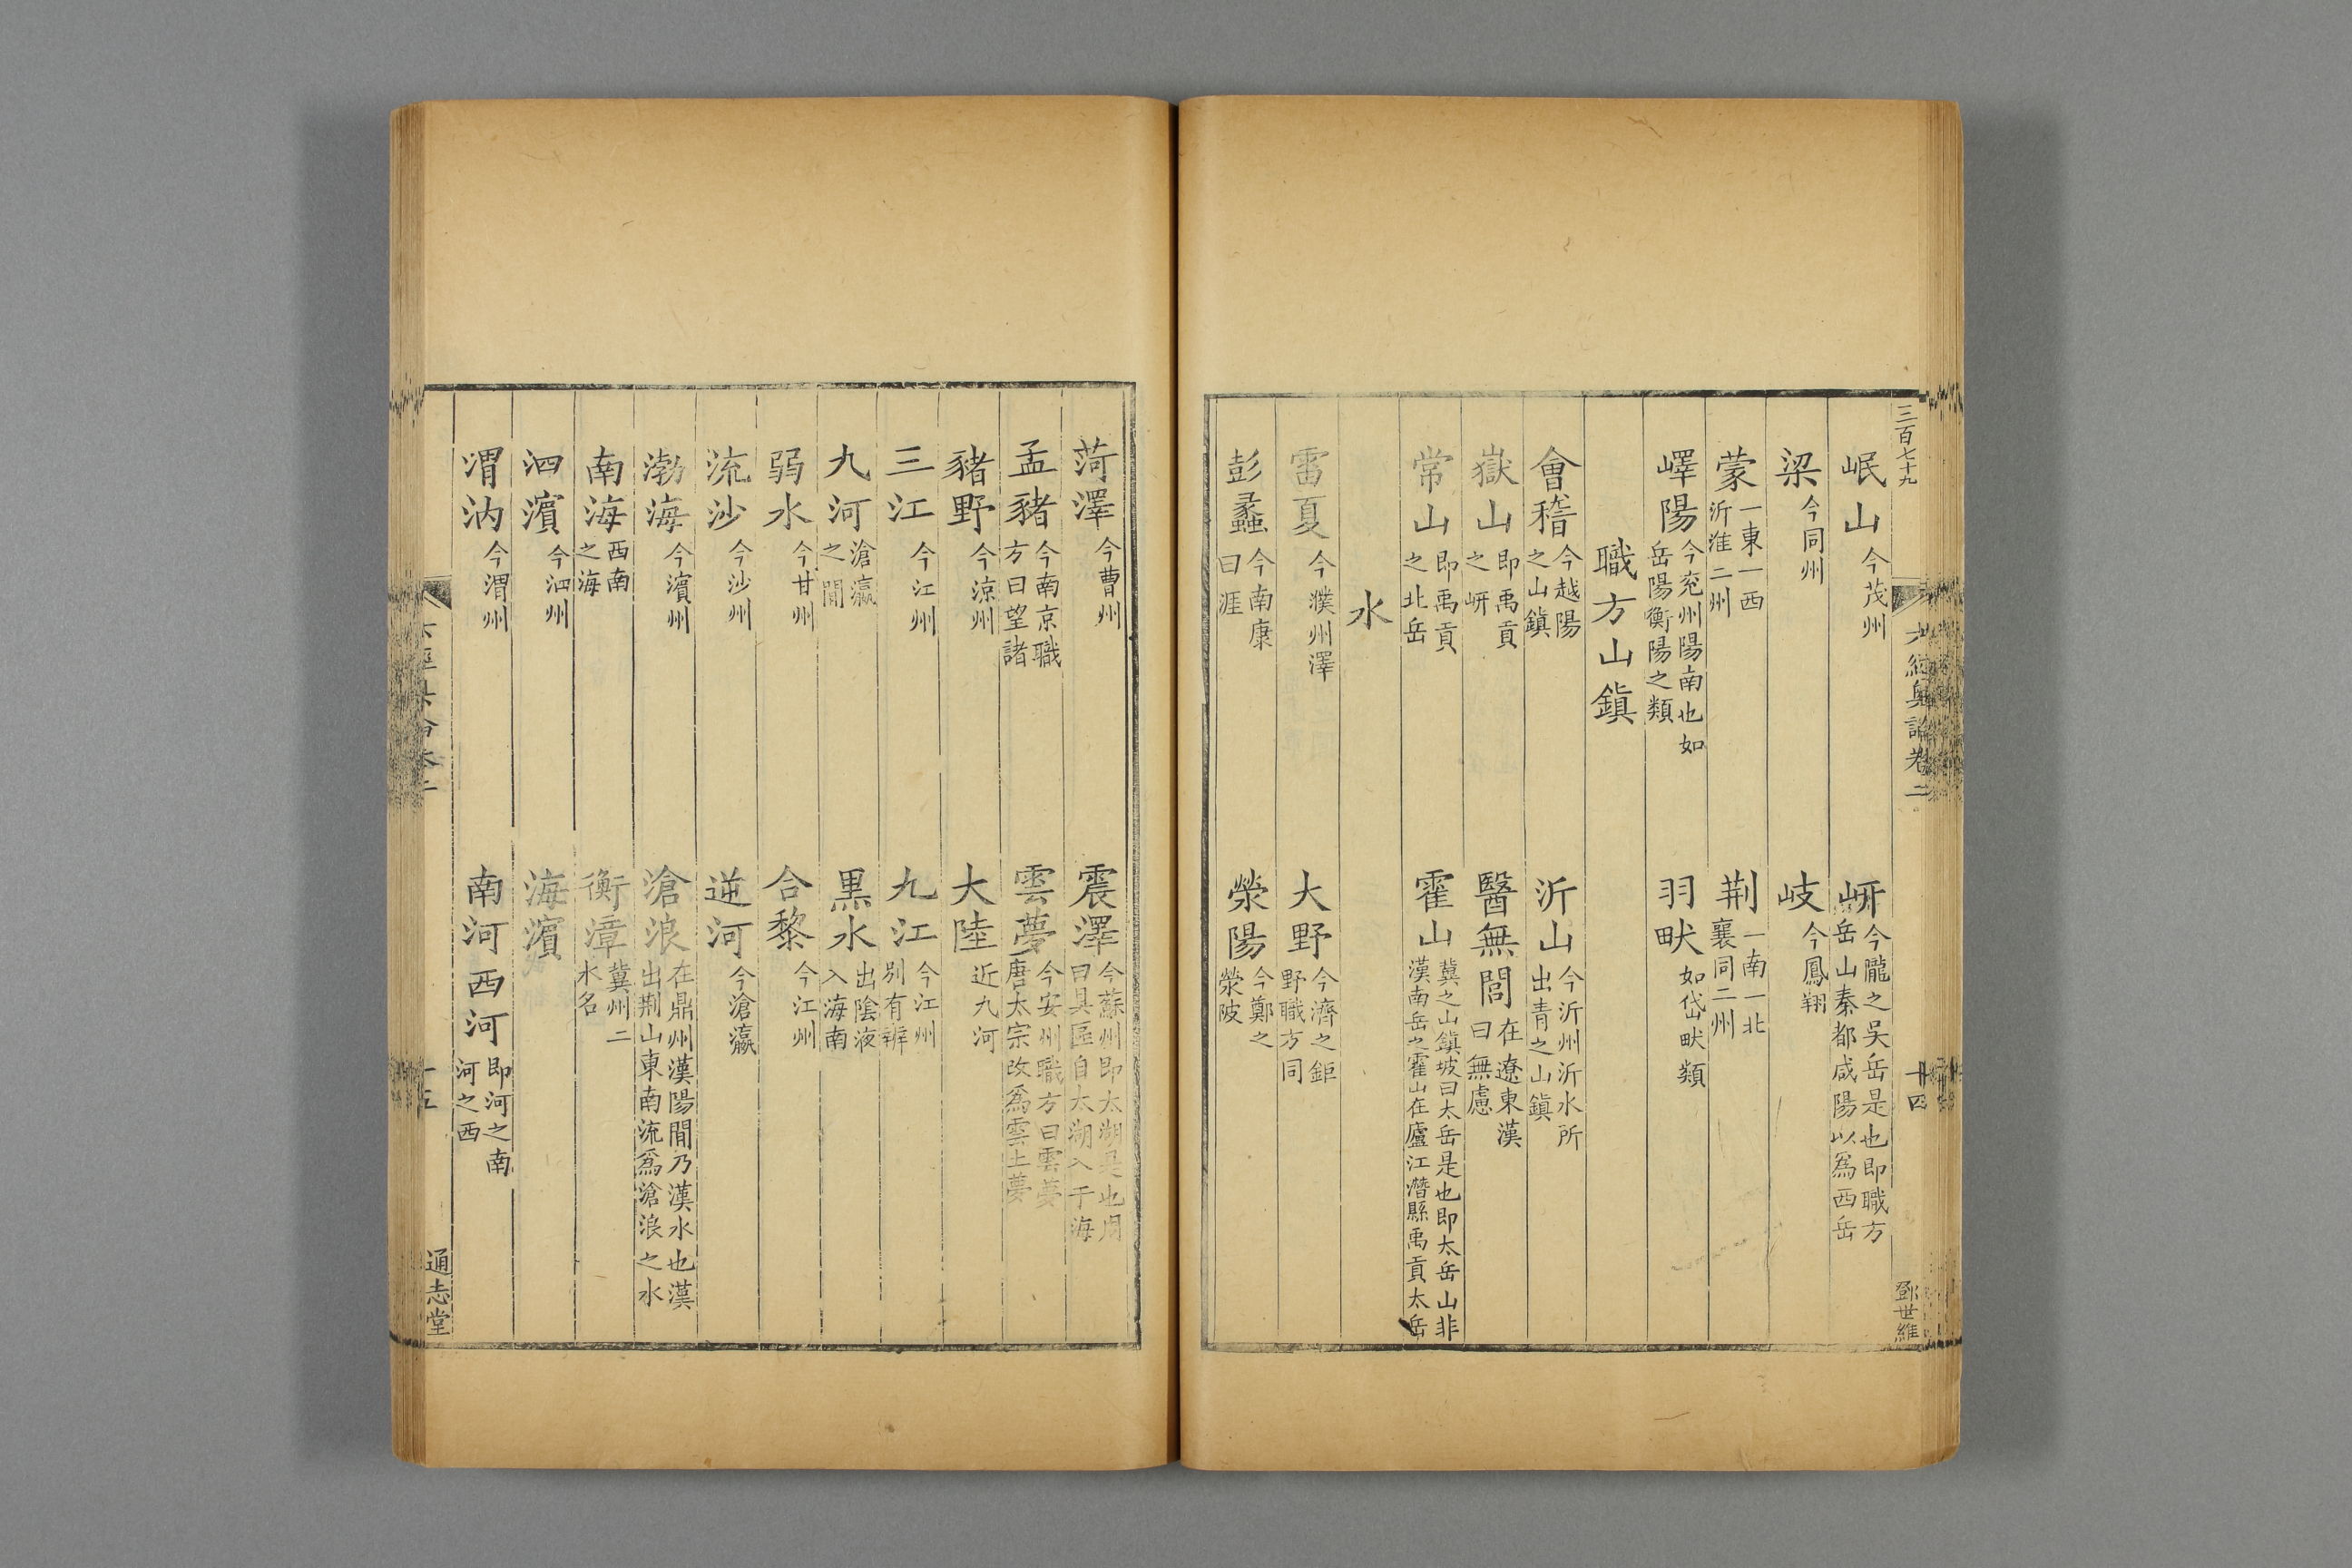 三百七十九
六經奧論卷二
十四
鄧世維
岷山 今茂州
岍 今隴之吳岳是也即職方岳山秦都咸陽以爲西岳
梁 今同州
岐 今鳳翔
蒙 一東一西沂淮二州
荆 一南一北襄同二州
嶧陽 今兖州陽南也如岳陽衡陽之類
羽畎 如岱畎類
職方山鎭
會稽 今越陽之山鎭
沂山 今沂州沂水所出青之山鎭
嶽山 即禹貢之岍
醫無閭 在遼東漢曰無慮
常山 即禹貢之北岳
霍山 冀之山鎭坡曰太岳是也即太岳山非漢南岳之霍山在廬江潛縣禹貢太岳
水
雷夏 今濮州澤
大野 今濟之鉅野職方同
彭蠡 今南康曰滙
滎陽 今鄭之滎陂
菏澤 今曹州
震澤 今蘇州即太湖是也周曰具區自太湖入于海
孟豬 今南京職方曰望諸
雲夢 今安州職方曰雲夢唐太宗改爲雲土夢
豬野 今涼州
大陸 近九河
三江 今江州
九江 今江州別有辨
九河 滄瀛之閒
黒水 出陰液入海南
弱水 今甘州
合黎 今江州
流沙 今沙州
逆河 今滄瀛
渤海 今濱州
滄浪 在鼎州漢陽閒乃漢水也漢出荆山東南流爲滄浪之水
南海 西南之海
衡漳 冀州二水名
泗濱 今泗州
海濱
渭汭 今渭州
南河西河 即河之南河之西
十五
通志堂